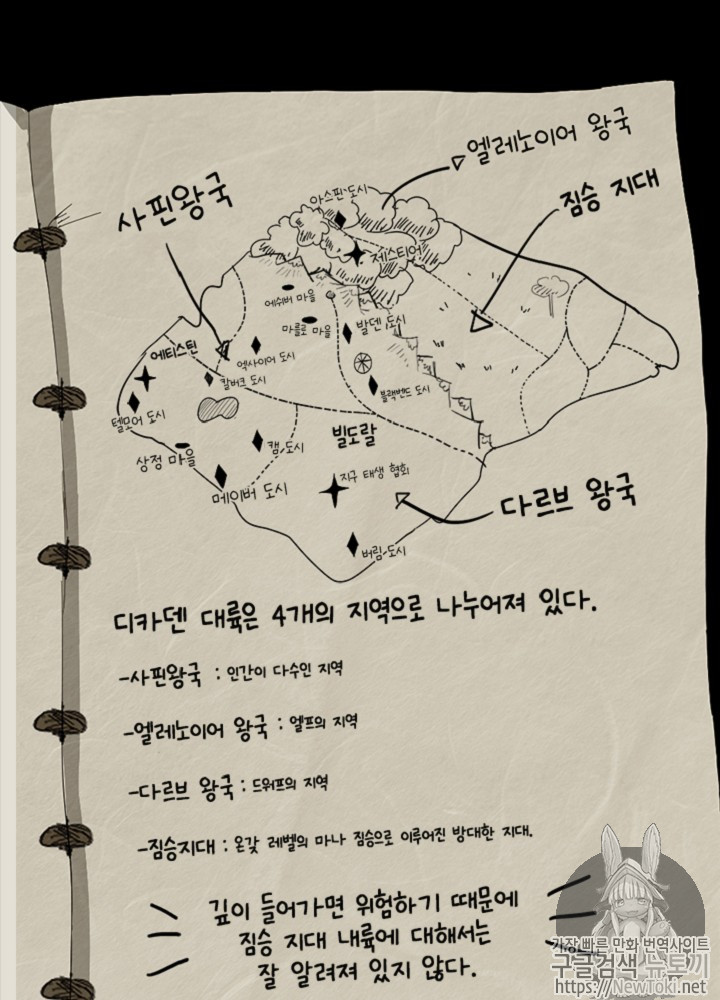 엘레노이어 왕국
사핀왕국
짐승 지대
아스핀 도시
제스티어
에쉬버 마을
마를로 마을
발덴 도시
에티스틴
엑사이어 도시
칼버크 도시
블랙밴드 도시
텔모어 도시
빌도랄
캠 도시
상정 마을
지구 태생 협회
메이버 도시
다르브 왕국
버림 도시
디카덴 대륙은 4개의 지역으로 나누어져 있다.
-사핀왕국 : 인간이 다수인 지역
-엘레노이어 왕국 : 엘프의 지역
-다르브 왕국 : 드워프의 지역
-짐승지대 : 온갖 레벨의 마나 짐승으로 이루어진 방대한 지대.
깊이 들어가면 위험하기 때문에
짐승 지대 내륙에 대해서는
잘 알려져 있지 않다.
가장 빠른 만화 번역사이트
구글검색 뉴토끼
https://NewToki.net